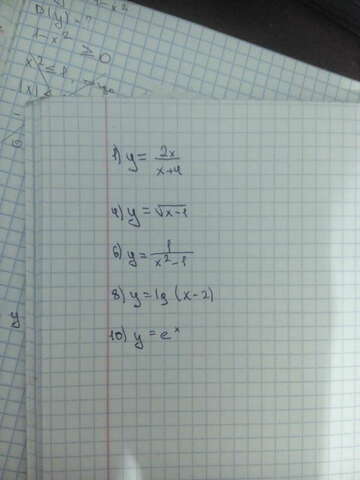 D(y) = ?
1 - x²
≥ 0
x² ≤ 1
1) y = 2x / (x+4)
4) y = √(x-1)
6) y = 1 / (x² - 1)
8) y = lg (x - 2)
10) y = eˣ
y